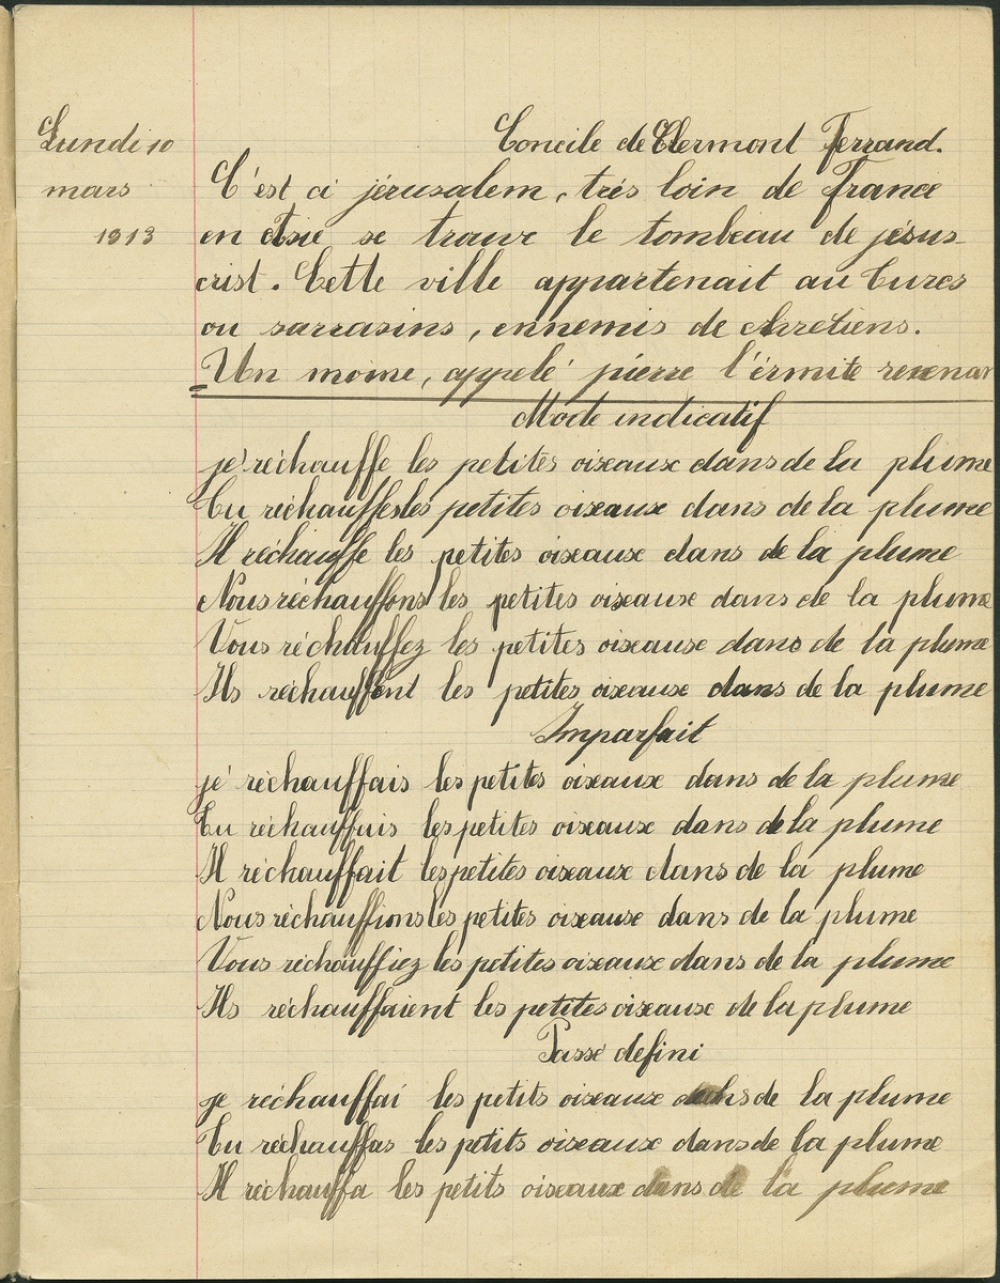 Lundi 10
mars
1913
Concile de Clermont Ferrand.
C'est ci jérusalem, très loin de France
en Asie se trouve le tombeau de jésus
crist. Cette ville appartenait au Turcs
ou sarrasins, ennemis de chrétiens.
Un moine, appelé pierre l'érmite revenar
Mode indicatif
je réchauffe les petites oiseaux dans de la plume
Tu réchauffes les petites oiseaux dans de la plume
Il réchauffe les petites oiseaux dans de la plume
Nous réchauffons les petites oiseaux dans de la plume
Vous réchauffez les petites oiseaux dans de la plume
Ils réchauffent les petites oiseaux dans de la plume
Imparfait
je réchauffais les petites oiseaux dans de la plume
Tu réchauffais les petites oiseaux dans de la plume
Il réchauffait les petites oiseaux dans de la plume
Nous réchauffions les petites oiseaux dans de la plume
Vous réchauffiez les petites oiseaux dans de la plume
Ils réchauffaient les petites oiseaux de la plume
Passé defini
je réchauffai les petits oiseaux dans de la plume
Tu réchauffas les petits oiseaux dans de la plume
Il réchauffa les petits oiseaux dans de la plume